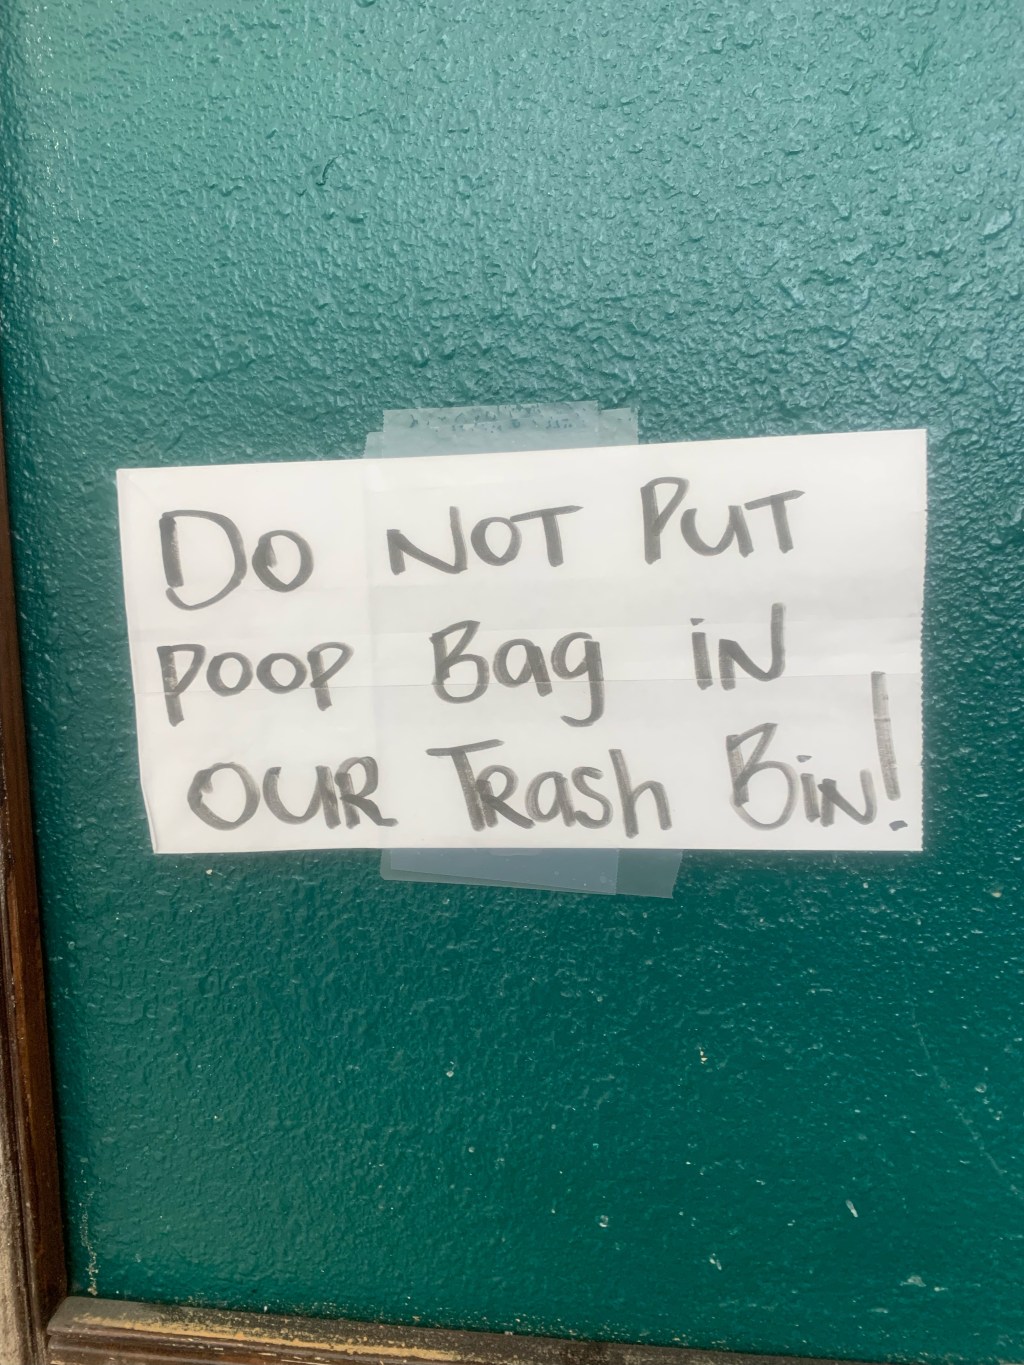 Do NOT PUT
POOP Bag iN
OUR TRash BiN!